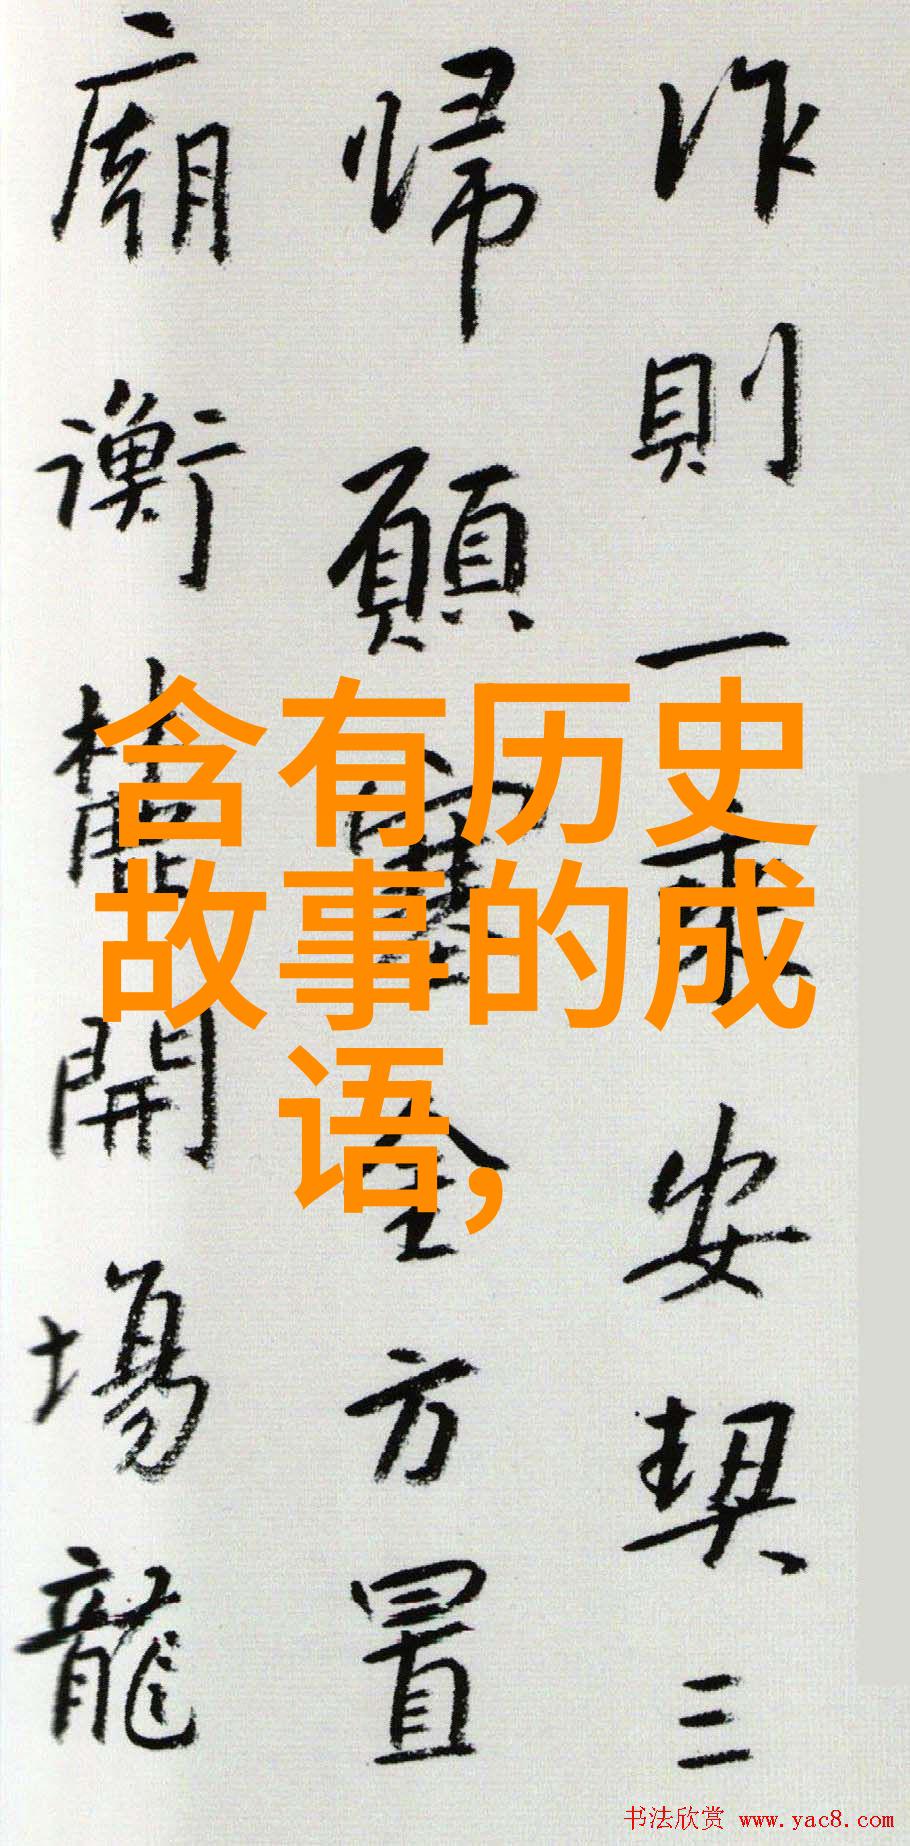 作則一安契三
帰願全方置
廟衡麓開場龍
含有历史
故事的成
语,
书法欣赏 www.yac8.com